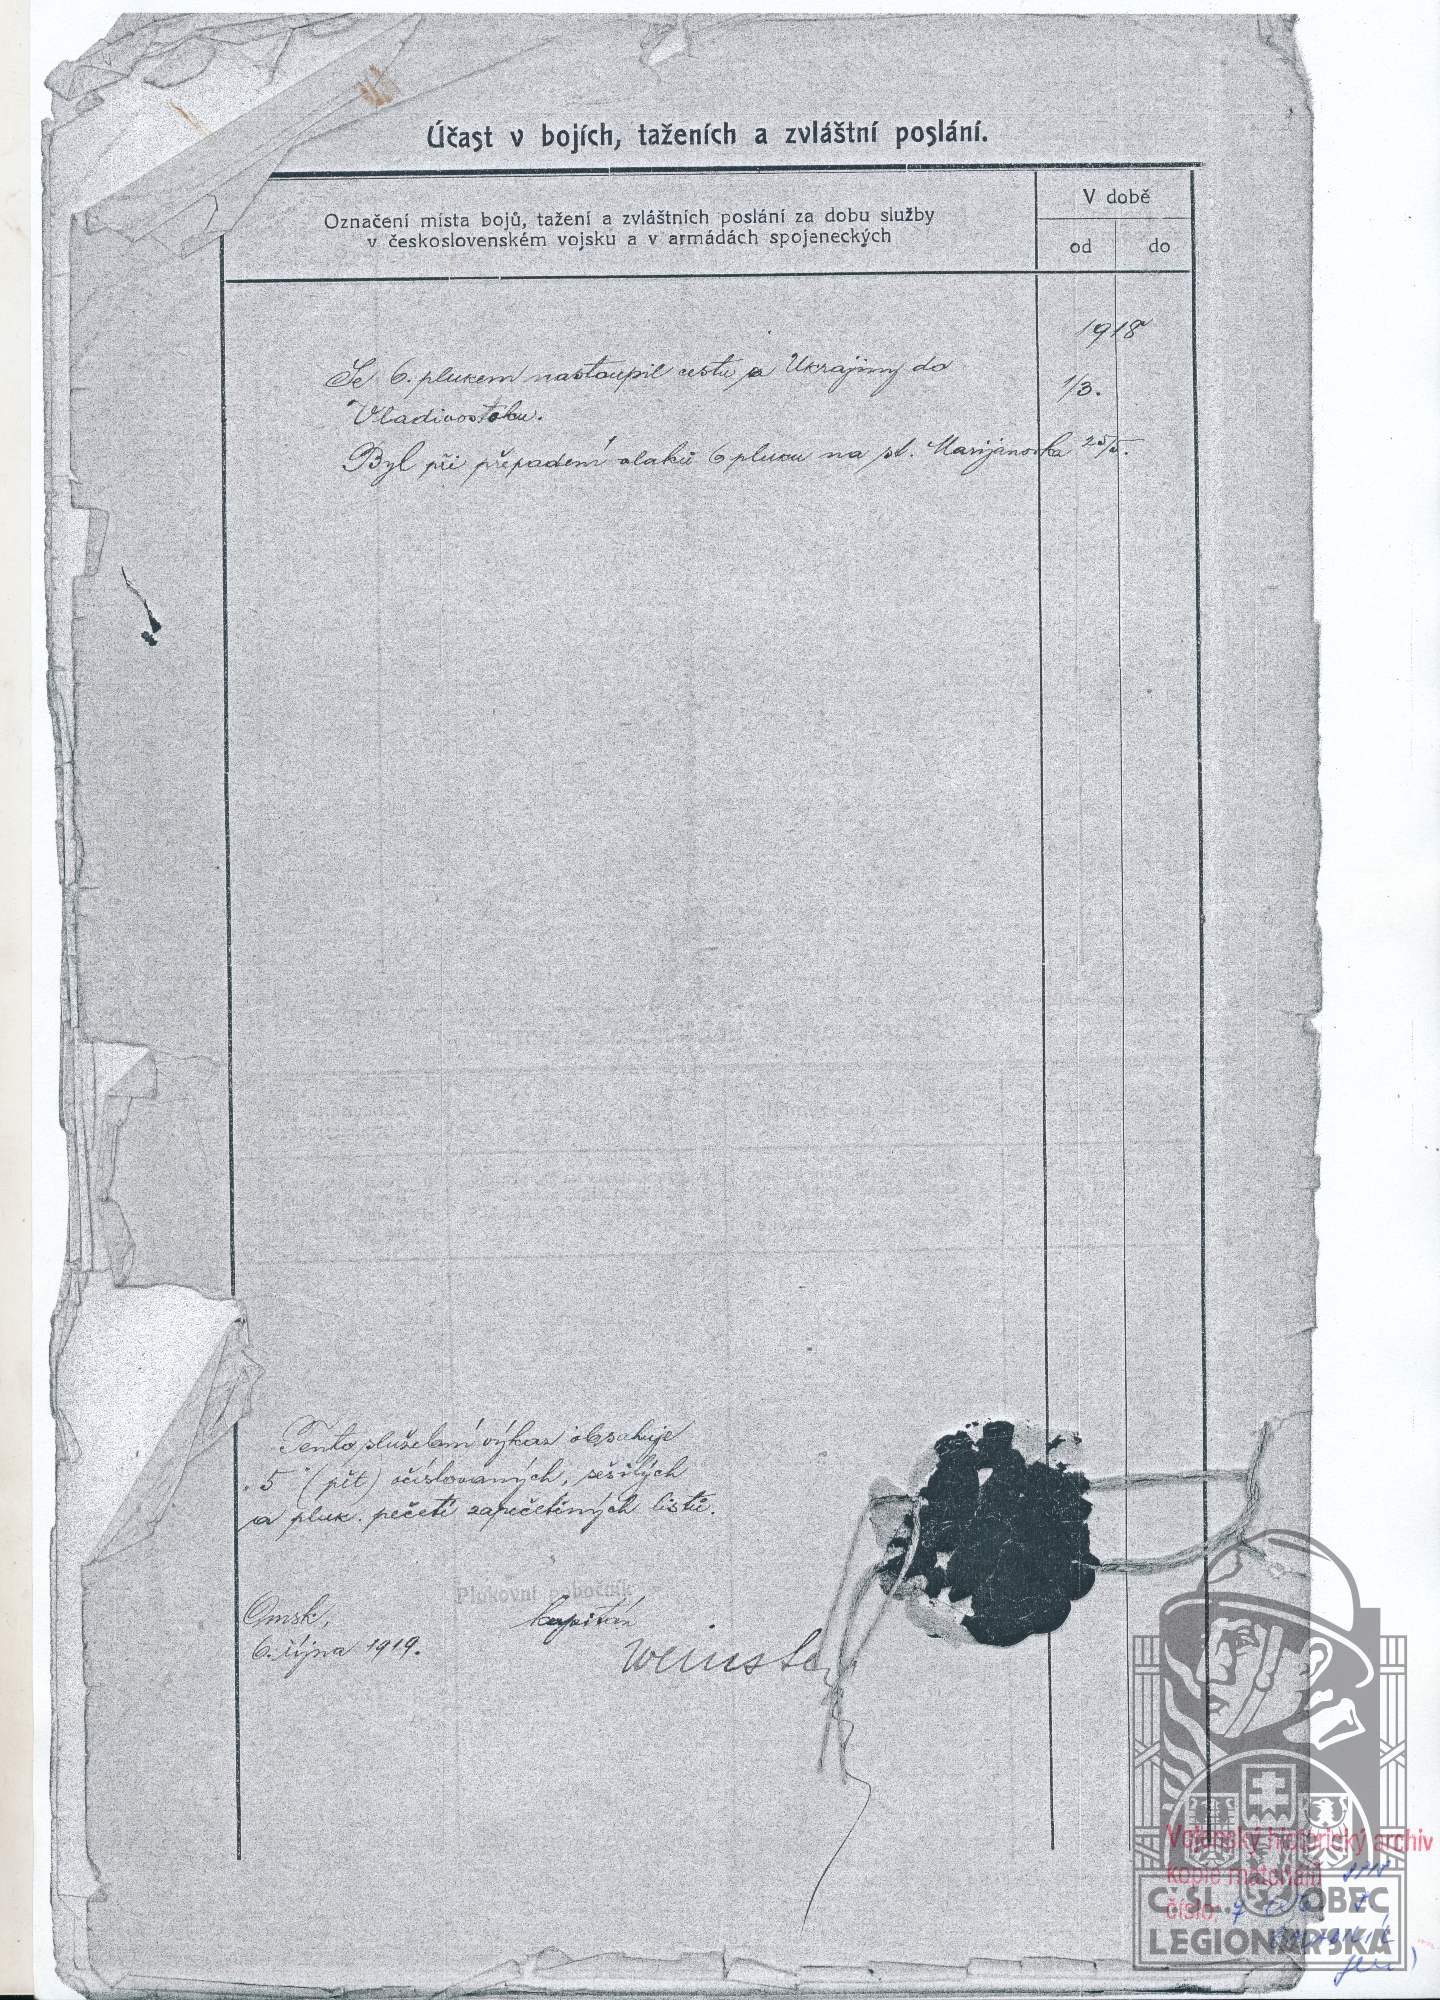 Účast v bojích, taženích a zvláštní poslání.
Označení místa bojů, tažení a zvláštních poslání za dobu služby
v československém vojsku a v armádách spojeneckých
V době
od do
1918
Se 6. plukem nastoupil cestu z Ukrajiny do 1/3.
Vladivostoku.
Byl při přepadení vlaků 6 pluku na st. Marijánovka 25/5.
Tento služební výkaz obsahuje
5 (pět) očíslovaných, sešitých
a pluk. pečetí zapečetěných listů.
Plukovní pobočník
Omsk, kapitán
6. října 1919.
Vojenský historický archiv
kopie materiálu
číslo: 7
ČSL. OBEC
LEGIONÁŘSKÁ